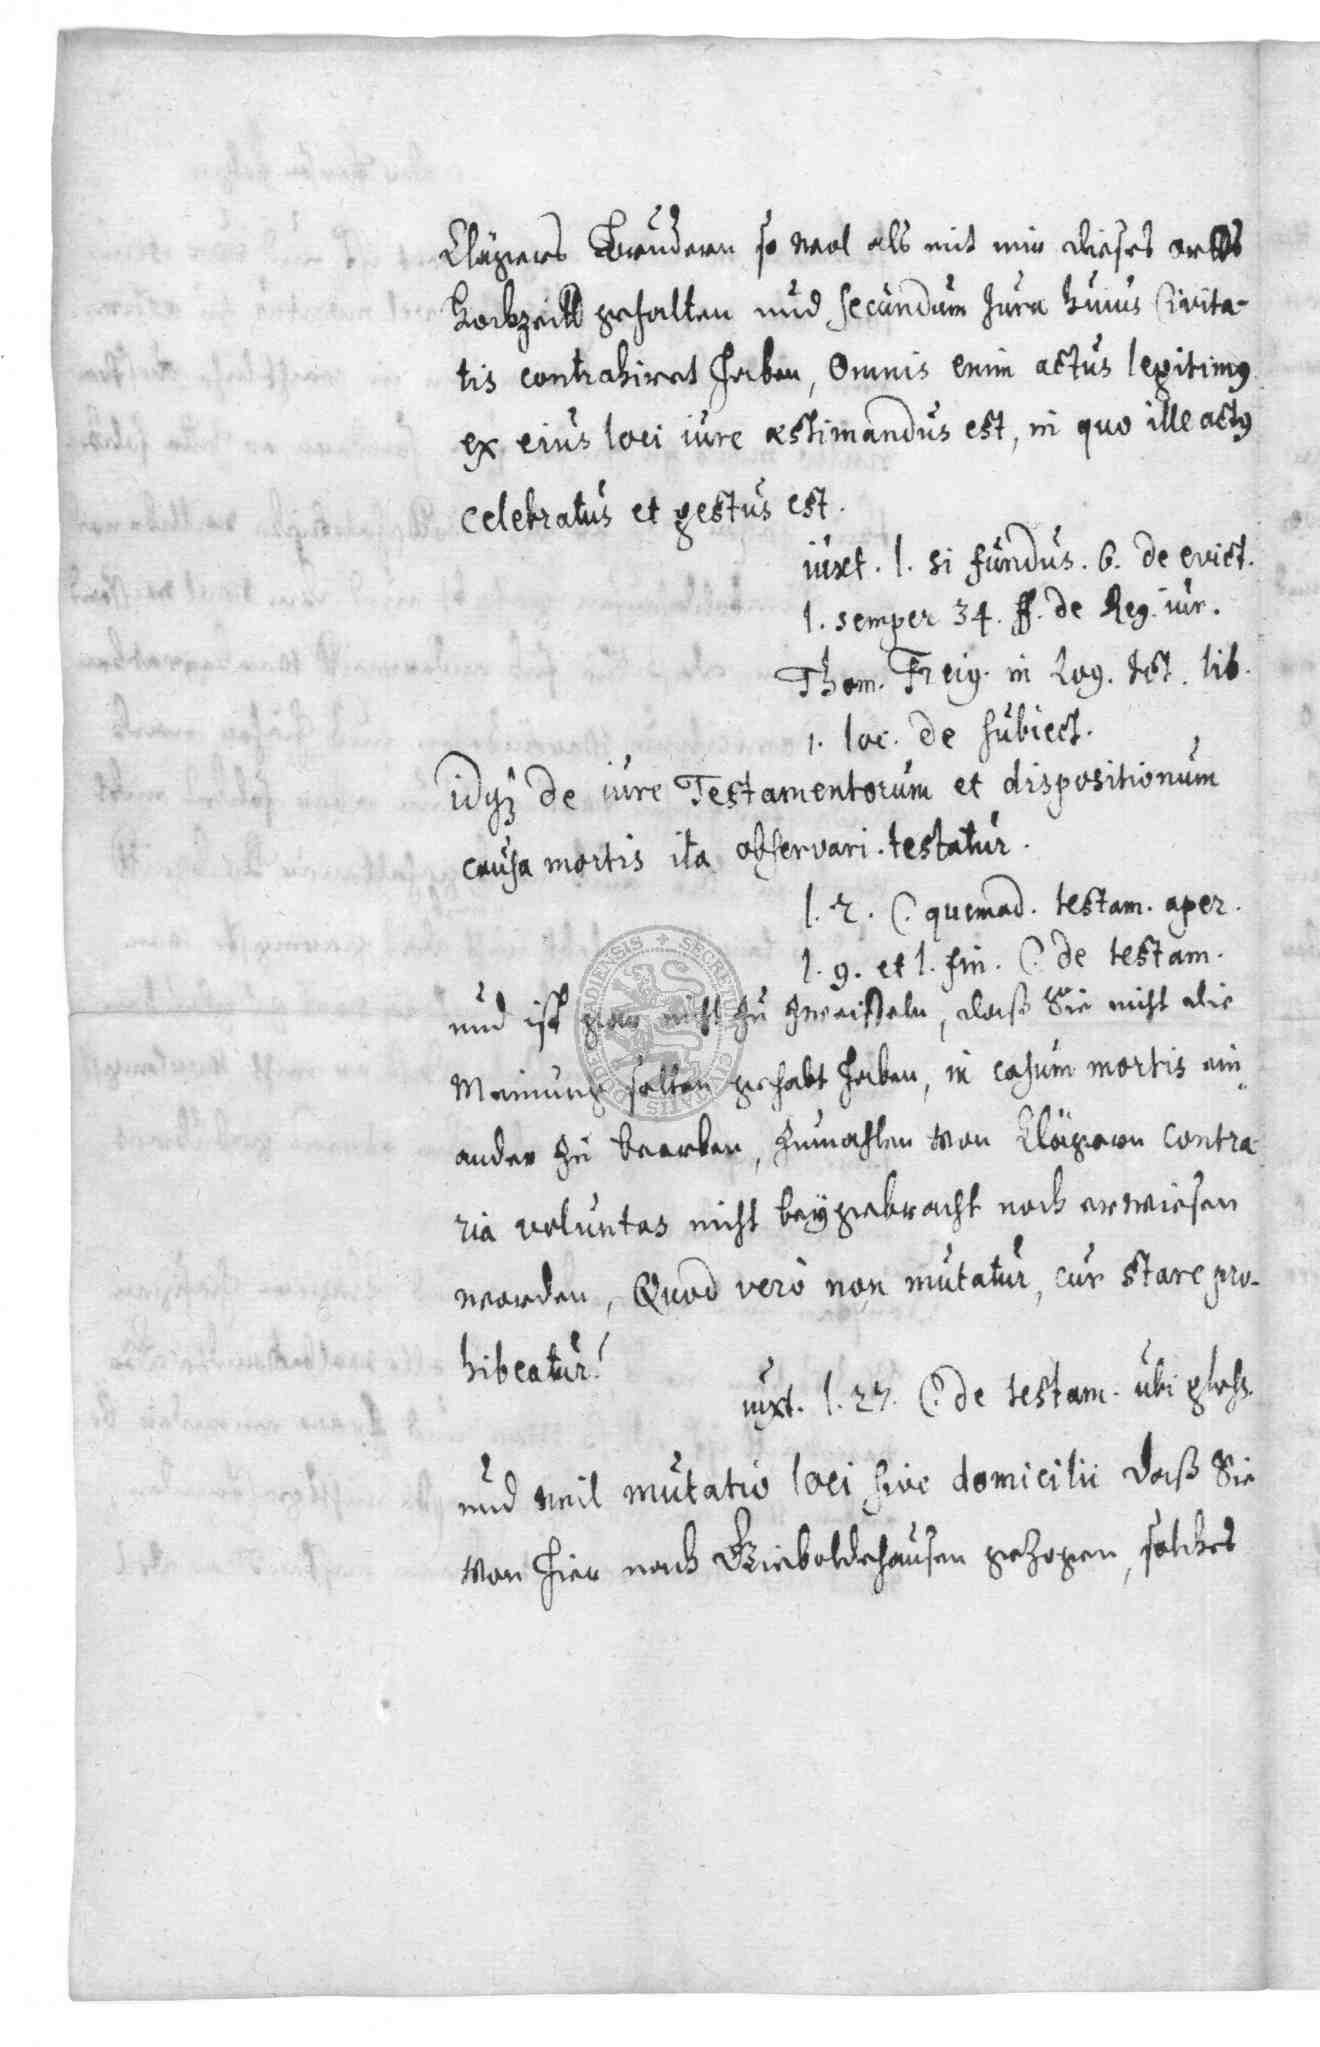 Clägers Brudern so wol als mit mir dieses orts
Hochzeitt gehalten und secundum Jura huius Civita-
tis contrahirt haben, Omnis enim actus legitimg
ex eius loci iure æstimandus est, in quo ille actg
celebratus et gestus est.
iuxt. l. si fundus. 6. de evict.
l. semper 34. ff. de Reg. iur.
Thom. Freig. in Log. Ict. lib.
1. loc. de subiect.
idqz de iure Testamentorum et dispositionum
causa mortis ita observari testatur.
l. 2. C. quemad. testam. aper.
l. 9. et l. fin. C. de testam.
und ist gar nicht zu zweiffeln, daß Sie nicht die
Meinung solten gehabt haben, in casum mortis ein
ander zu beerben, zumahlen von Clägern contra-
ria voluntas nicht beÿgebracht noch erwiesen
worden, Quod verò non mutatur, cur stare pro-
hibeatur?
iuxt. l. 27. C. de testam. ubi gloss.
und weil mutatio loci sive domicilii daß Sie
von hier nach Gieboldehausen gezogen, solches
SECRETUM CIVITATIS ADIENSIS